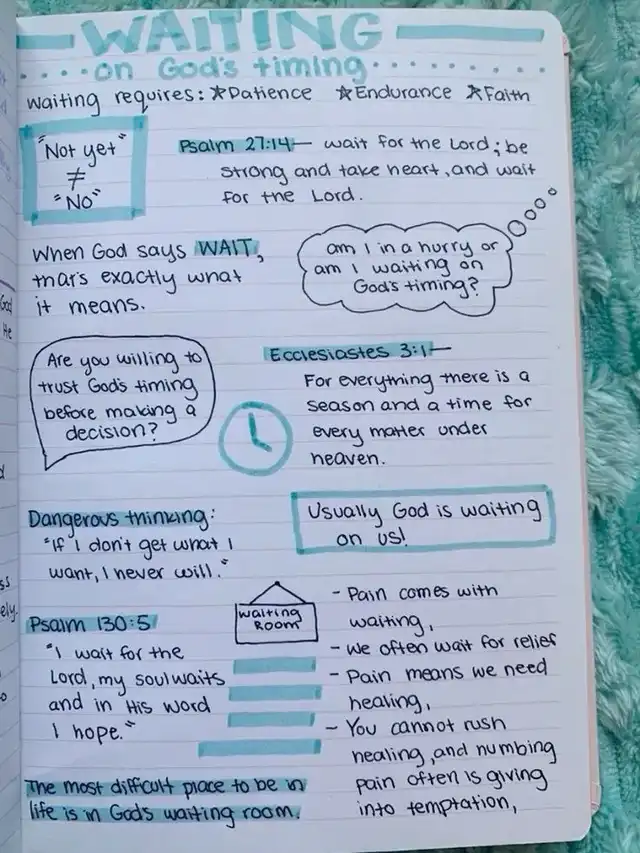 WAITING
on God's timing
Waiting requires: ☆Patience ☆Endurance ☆Faith
"Not yet"
≠
"No"
Psalm 27:14— wait for the Lord; be
strong and take heart, and wait
for the Lord.
When God says WAIT,
that's exactly what
it means.
am I in a hurry or
am I waiting on
God's timing?
Are you willing to
trust God's timing
before making a
decision?
Ecclesiastes 3:1—
For everything there is a
season and a time for
every matter under
heaven.
Dangerous thinking:
"If I don't get what I
want, I never will."
Usually God is waiting
on us!
Psalm 130:5
"I wait for the
Lord, my soul waits
and in His word
I hope."
Waiting
Room
- Pain comes with
waiting,
- We often wait for relief
- Pain means we need
healing,
- You cannot rush
healing, and numbing
pain often is giving
into temptation,
The most difficult place to be in
life is in God's waiting room.